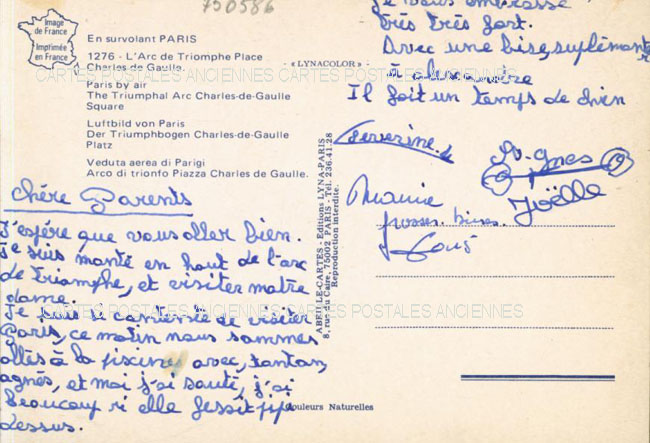 750586
Image
de France
Imprimée
en France
En survolant PARIS
1276 - L'Arc de Triomphe Place
Charles-de-Gaulle.
Paris by air
The Triumphal Arc Charles-de-Gaulle
Square
Luftbild von Paris
Der Triumphbogen Charles-de-Gaulle
Platz
Veduta aerea di Parigi
Arco di trionfo Piazza Charles de Gaulle.
- «LYNACOLOR» -
CARTES POSTALES ANCIENNES CARTES POSTALES ANCIENNES
chère Parents
J'espére que vous aller bien.
Je suis monté en haut de l'arc
de triomphe, et visiter notre
dame.
Je suis contente de visiter
Paris, ce matin nous sommes
allés à la piscine avec, tantan,
agnés, et moi j'ai sauté, j'ai
beaucoup ri elle
dessus.
ABEILLE-CARTES - Editions LYNA-PARIS
8, rue du Caire, 75002 PARIS - Tél. 236.41.28
Reproduction interdite.
Couleurs Naturelles
Je vous embrasse
très très fort.
Avec une bise, suplémentr
à
Il fait un temps de chien
Severine.
Agnes
Joëlle
Mamie
grosses bises
CARTES POSTALES ANCIENNES CARTES POSTALES ANCIENNES